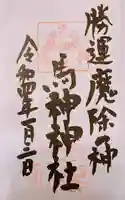 勝運魔除神
馬神神社
令和四年一月二日